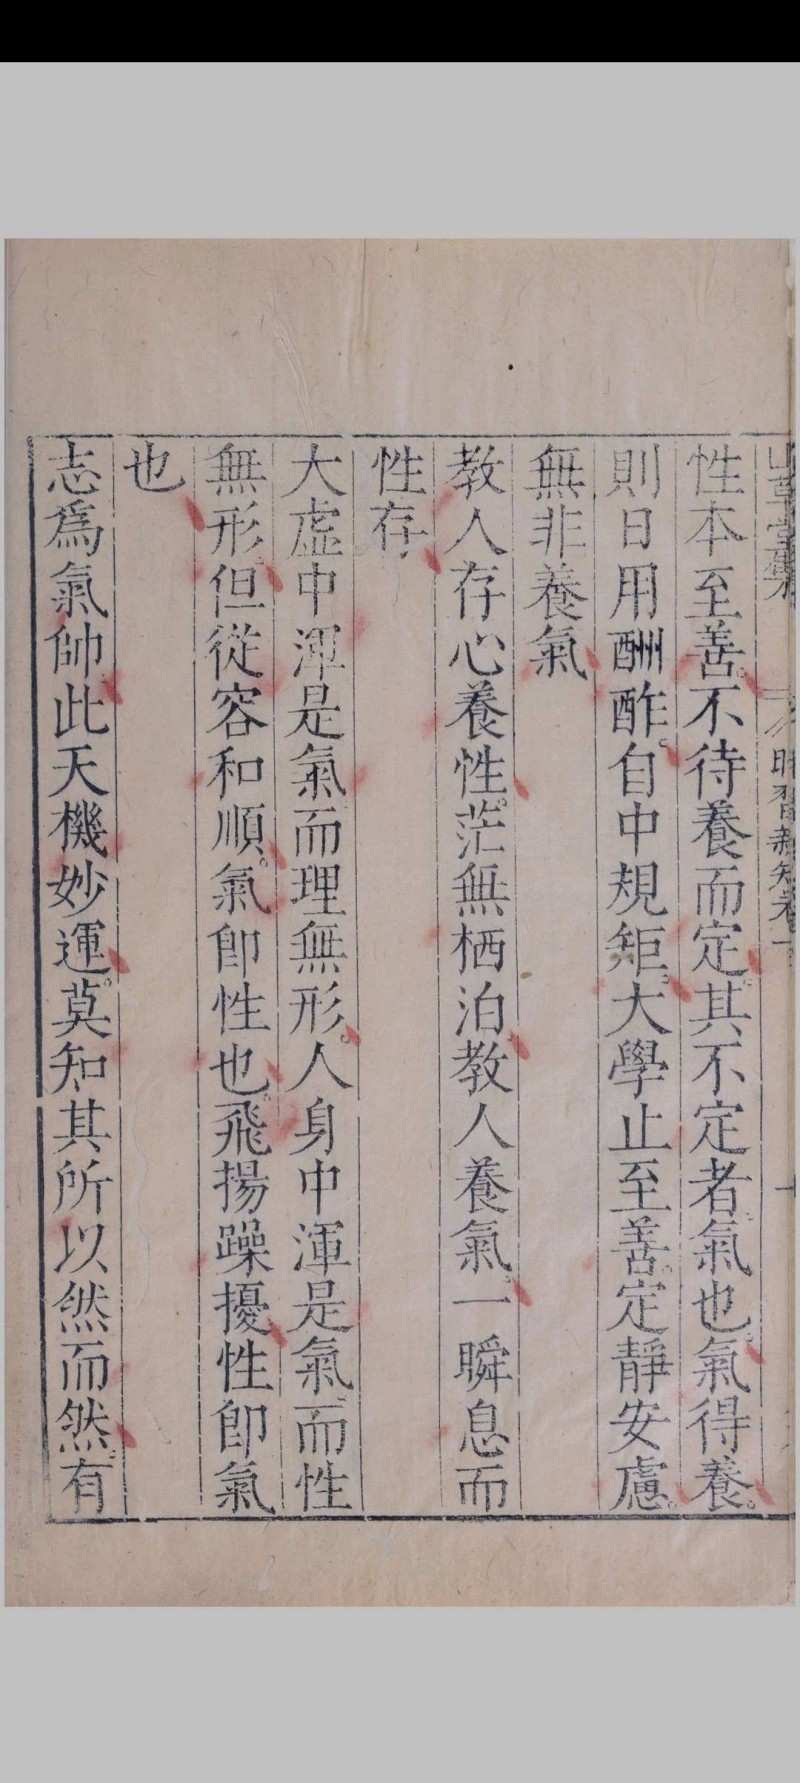 山草堂集
明習新知卷一
性本至善。不待養而定。其不定者氣也。氣得養。
則日用酬酢。自中規矩。大學止至善。定靜安慮。
無非養氣
教人存心養性。茫無栖泊。教人養氣。一瞬息而
性存
大虛中渾是氣而理無形。人身中渾是氣。而性
無形。但從容和順。氣卽性也。飛揚躁擾。性卽氣
也
志爲氣帥。此天機妙運。莫知其所以然而然。有